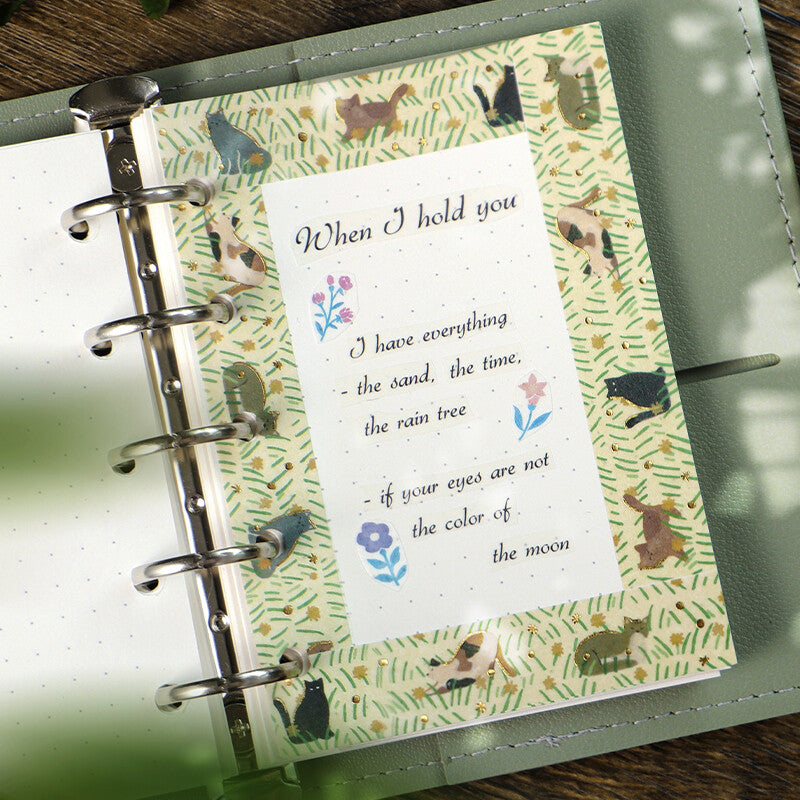 When I hold you
I have everything
- the sand, the time,
the rain tree
- if your eyes are not
the color of
the moon